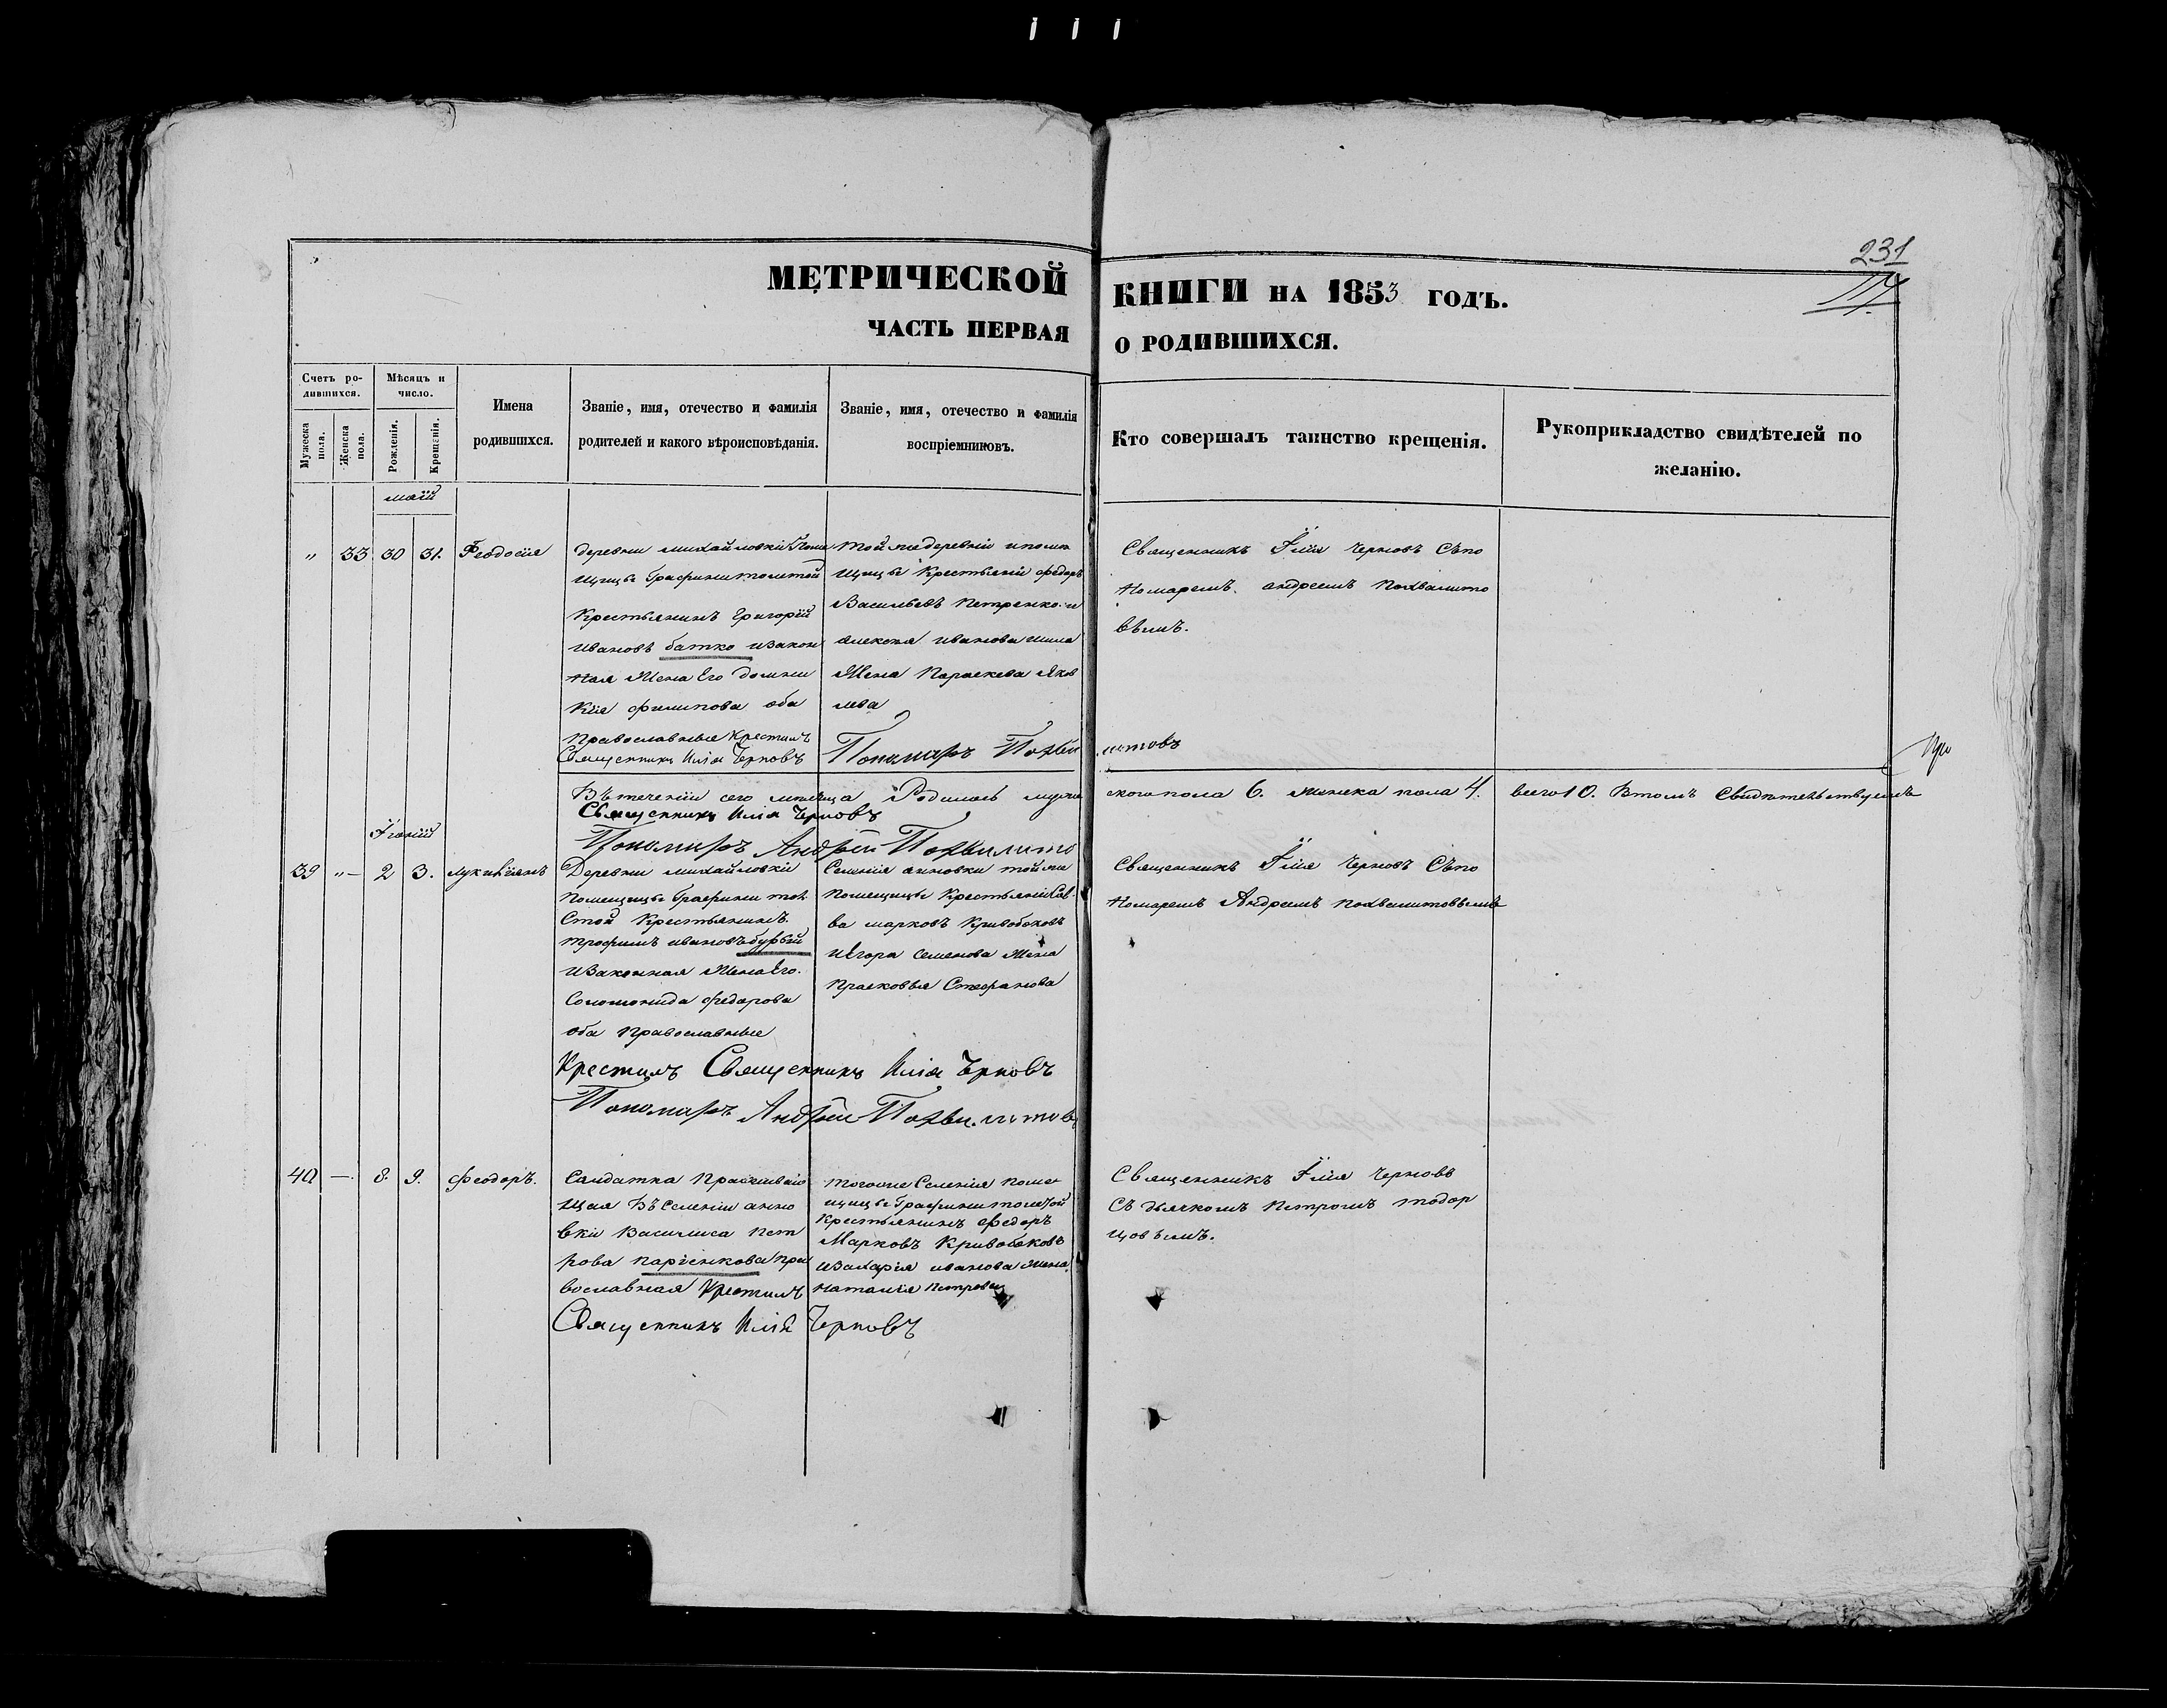 231
МЕТРИЧЕСКОЙ КНИГИ НА 1853 ГОДЪ.
17.
ЧАСТЬ ПЕРВАЯ О РОДИВШИХСЯ.
Счетъ ро-
дившихся.
Мужеска пола.
Женска пола.
Мѣсяцъ и
число.
Рожденія.
Крещенія.
Имена
родившихся.
Званіе, имя, отечество и фамилія
родителей и какого вѣроисповѣданія.
Званіе, имя, отечество и фамилія
воспріемниковъ.
Кто совершалъ таинство крещенія.
Рукоприкладство свидѣтелей по
желанію.
маій
" 33 30 31. Феодосія
Деревни михайловкі Поме
щицы Графини толстой
Крестьянинъ Григорій
ивановъ батко изакон
ная Жена Его домни
кія филипова оба
Православные Крестилъ
Священникъ Илія Черновъ
тойжедеревни ипоме
щицы Крестьяніи федоръ
Васильевъ Петренко и
алексѣя иванова шила
Жена Параскева Яков
лева
Пономаръ Похвалитовъ
Священникъ Илія Черновъ Съпо
номаремъ андреемъ Похвалито
вымъ.
Втеченіи сего месяца Родилось мужескогопола 6. женска пола 4. всего 10. Втомъ Свидѣтельствуемъ
Священникъ Илія Черновъ
Пономаръ Андрей Похвалито
Іюній
39 "– 2 3. лукиліянъ
Деревни михайловкі
помещицы Графини тол
Стой Крестьянинъ
трофимъ ивановъ бурый
изаконная Жена Его
Соломонида федорова
оба православные
Селенія анновки тойже
помещицы Крестьяніи Сав
ва марковъ Кривобоковъ
иЕгора Семенова Жена
Прасковья Стефанова
Священникъ Илія Черновъ Съпо
номаремъ Андреемъ похвалитовымъ
Крестилъ Священникъ Илія Черновъ
Пономаръ Андрей Похвалитовъ
40 –. 8. 9. Феодоръ.
Салдатка Проживаю
щая Въ Селеніи анно
вкі Василиса Пет
рова
пра
вославная Крестилъ
Священникъ Илія Черновъ
тогоже Селенія поме
щицы Графини толстой
Крестьянинъ Федоръ
Марковъ Кривобоковъ
иЗахарія иванова Жена
наталія петрова
Священникъ Илія Черновъ
Съ дьячкомъ Петромъ тодор
цовымъ.